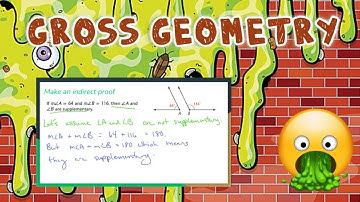 GROSS GEOMETRY
Make an indirect proof
If m∠A = 64 and m∠B = 116, then ∠A and
∠B are supplementary.
64° 116°
A B
Let's assume ∠A and ∠B are not supplementary.
m∠A + m∠B = 64 + 116 = 180.
But m∠A + m∠B = 180 which means
they are supplementary.